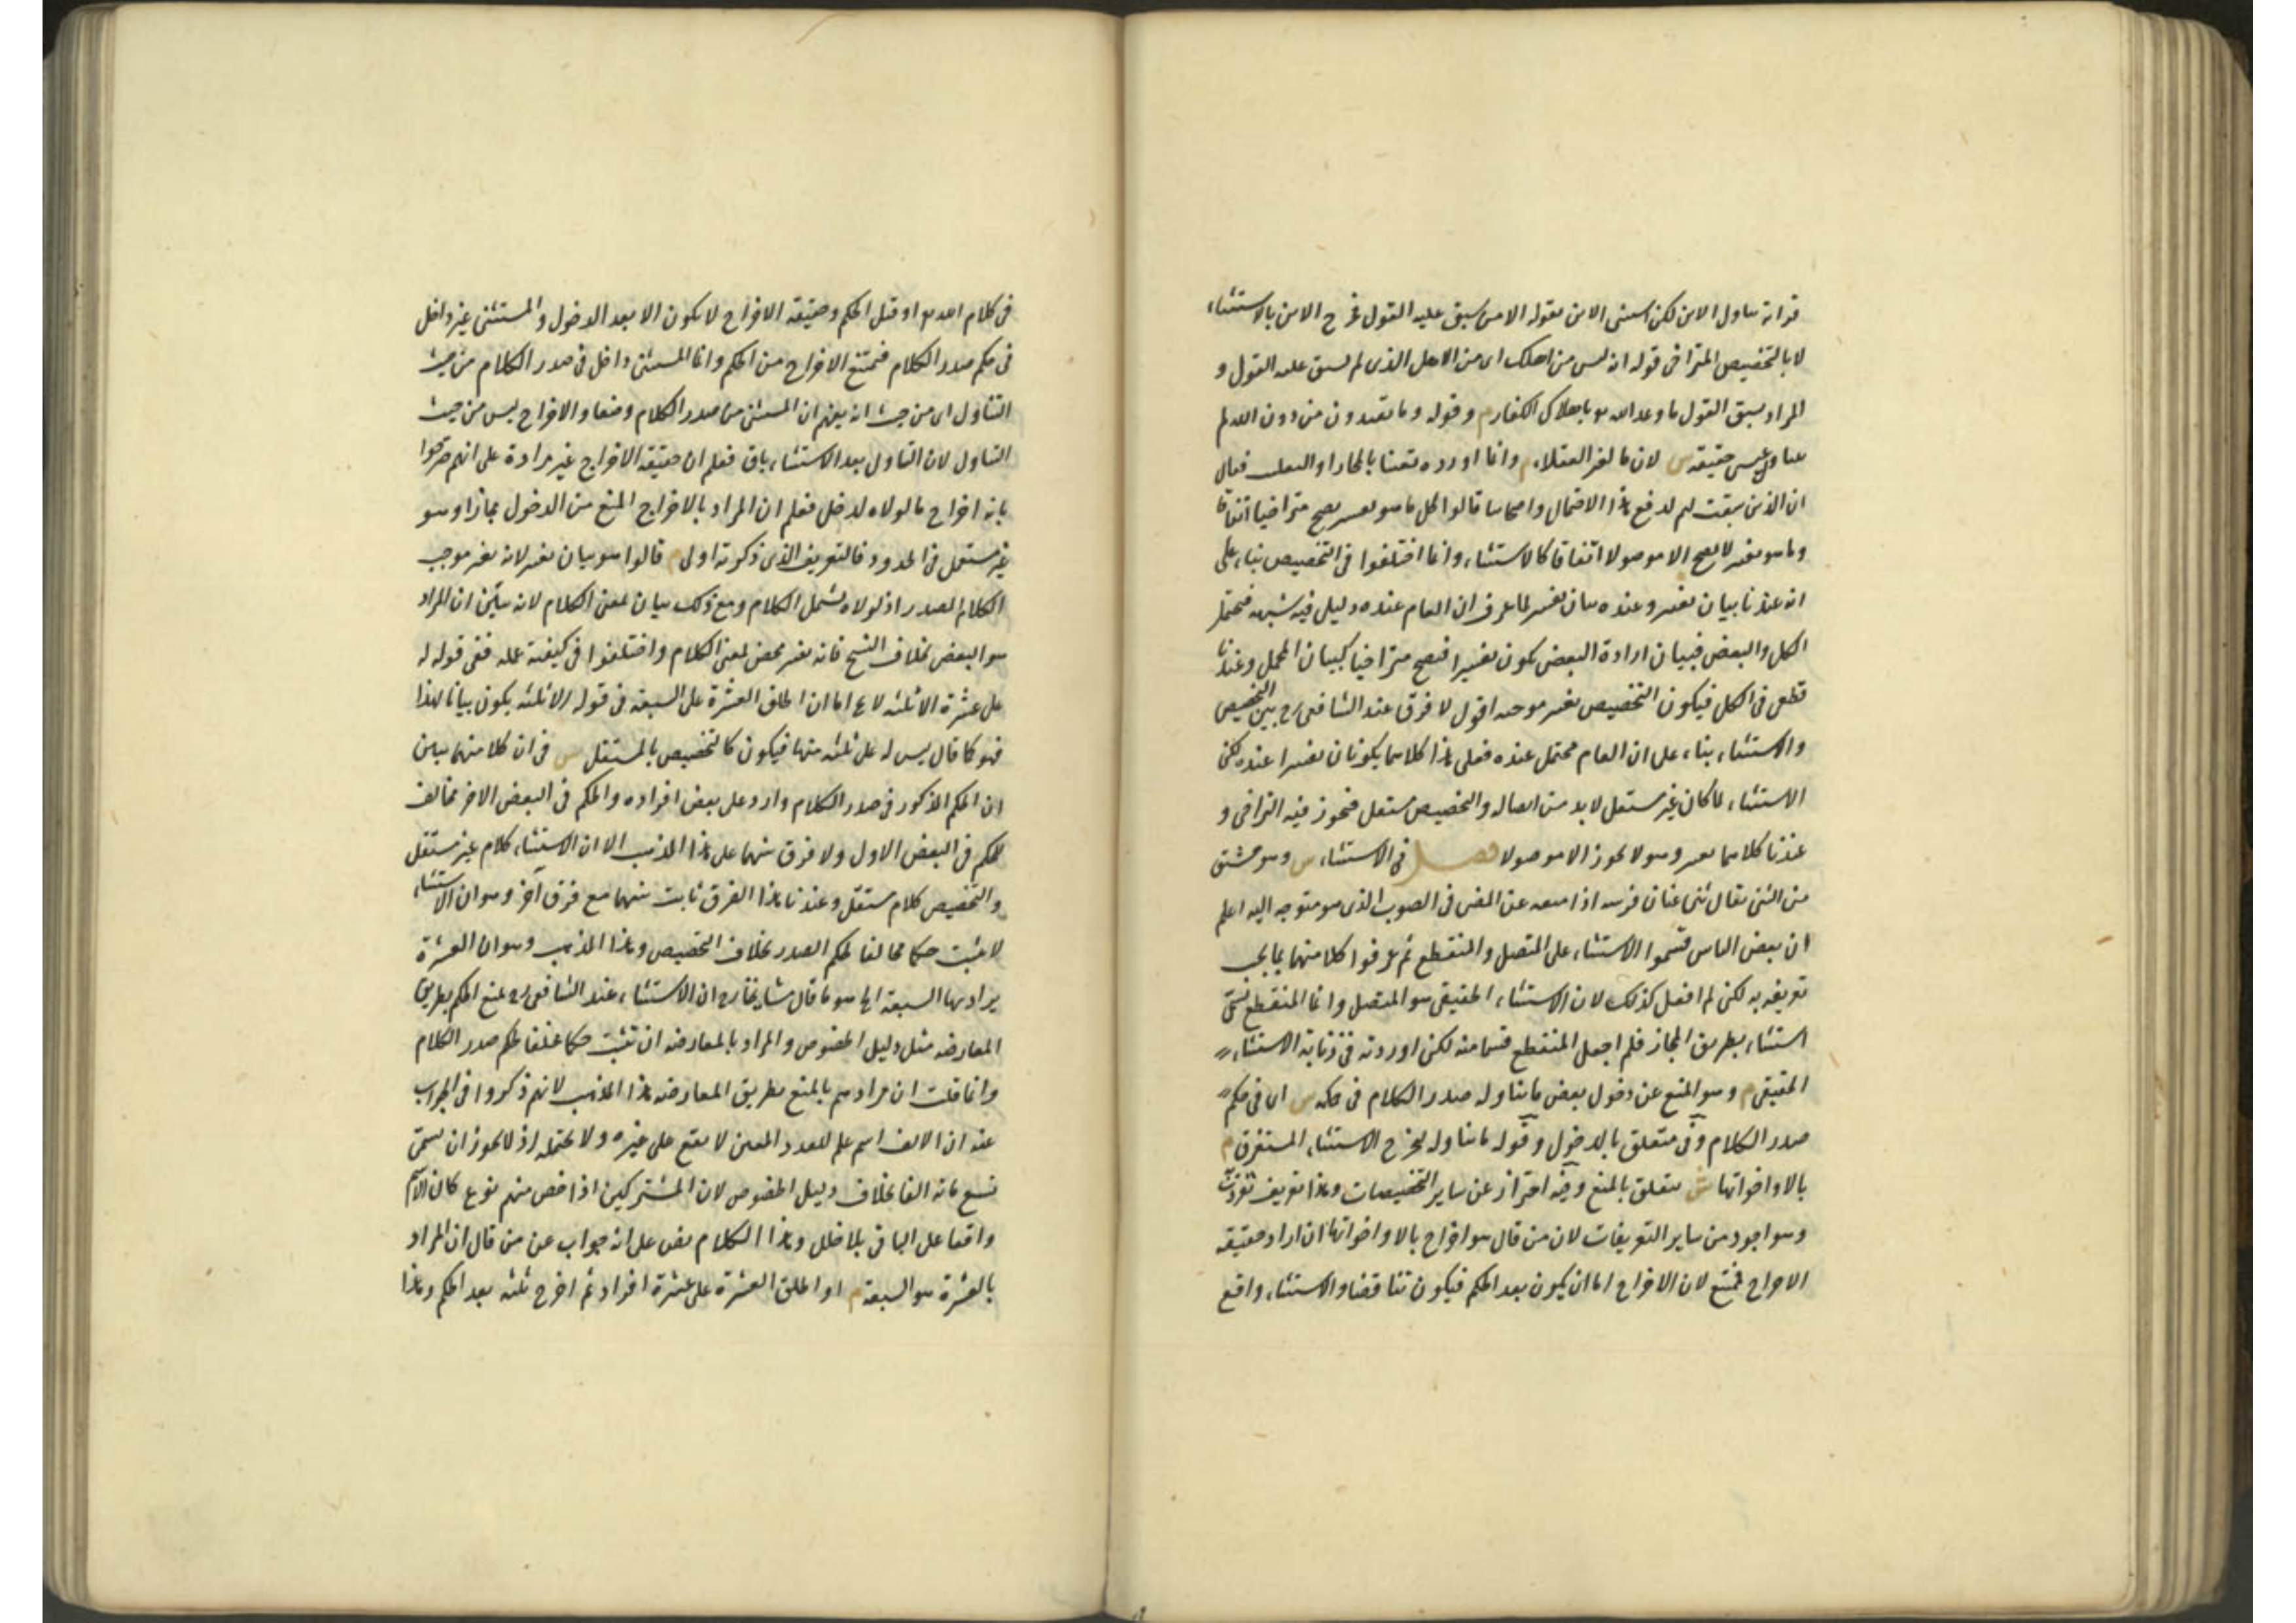 قرابة تناول الابن لكن استثنى الابن بقوله الا من سبق عليه القول فخرج الابن بالاستثناء
لا بالتخصيص المتراخى قوله انه ليس من اهلك اى من الاهل الذى لم يسبق عليه القول و
المراد بسبق القول ما وعد الله تع باهلاك الكفار م وقوله وما تعبدون من دون الله لم
يتناول عيسى حقيقة ش لان ما لغير العقلاء م وانما اورده تعنتا بالمجاز او التغليب فقال
ان الذين سبقت لهم لدفع هذا الاحتمال واصحابنا قالوا كل ما هو تفسير يصح متراخيا اتفاقا
وما هو تغيير لا يصح الا موصولا اتفاقا كالاستثناء وانما اختلفوا فى التخصيص بناء على
انه عندنا بيان تغيير وعنده بيان تفسير لما عرف ان العام عنده دليل فيه شبهة فيحتمل
الكل والبعض فبيان ارادة البعض يكون تفسيرا فيصح متراخيا كبيان المجمل وعندنا
قطعى فى الكل فيكون التخصيص تغيير موجبه اقول لا فرق عند الشافعى رح بين التخصيص
والاستثناء بناء على ان العام محتمل عنده فعلى هذا كلاهما يكونان تفسيرا عنده لكن
الاستثناء لما كان غير مستقل لا بد من اتصاله والتخصيص مستقل فيجوز فيه التراخى و
عندنا كلاهما تغيير وهو لا يجوز الا موصولا فصل فى الاستثناء ش وهو مشتق
من الثنى يقال ثنى عنان فرسه اذا منعه عن المضى فى الصوب الذى هو متوجه اليه اعلم
ان بعض الناس قسموا الاستثناء على المتصل والمنقطع ثم عرفوا كلا منهما بما يجب
تعريفه به لكنى لم افعل كذلك لان الاستثناء الحقيقى هو المتصل وانما المنقطع يسمى
استثناء بطريق المجاز فلم اجعل المنقطع قسما منه لكن اوردته فى ذنابة الاستثناء
الحقيقى م وهو المنع عن دخول بعض ما يتناوله صدر الكلام فى حكمه ش اى فى حكم
صدر الكلام وفى متعلق بالدخول وقوله ما يتناوله يخرج الاستثناء المستغرق م
بالا واخواتها ش متعلق بالمنع وفيه احتراز عن ساير التخصيصات وهذا تعريف تفردت
وهو اجود من ساير التعريفات لان من قال هو اخراج بالا واخواتها ان اراد حقيقة
الاخراج فممتنع لان الاخراج اما ان يكون بعد الحكم فيكون تناقضا والاستثناء واقع
فى كلام الله تع او قبل الحكم وحقيقة الاخراج لا يكون الا بعد الدخول والمستثنى غير داخل
فى حكم صدر الكلام فيمتنع الاخراج من الحكم وانما المستثنى داخل فى صدر الكلام من حيث
التناول اى من حيث انه يفهم ان المستثنى من صدر الكلام وضعا والاخراج ليس من حيث
التناول لان التناول بعد الاستثناء باق فعلم ان حقيقة الاخراج غير مرادة على انهم صرحوا
بانه اخراج ما لولاه لدخل فعلم ان المراد بالاخراج المنع من الدخول مجازا وهو
غير مستعمل فى الحدود فالتعريف الذى ذكرته اولى م قالوا هو بيان تغيير لانه تغير موجب
الكلام الصدر اذ لولاه لشمل الكلام ومع ذلك بيان لمعنى الكلام لانه يبين ان المراد
هو البعض بخلاف النسخ فانه تغيير محض لمعنى الكلام واختلفوا فى كيفية عمله ففى قوله له
على عشرة الا ثلثة لا يخ اما ان اطلق العشرة على السبعة فى قوله الا ثلثة يكون بيانا لهذا
فهو كما قال ليس له على ثلثة منها فيكون كالتخصيص بالمستقل ش فى ان كلا منهما يبين
ان الحكم المذكور فى صدر الكلام وارد على بعض افراده والحكم فى البعض الاخر مخالف
لحكم فى البعض الاول ولا فرق بينهما على هذا المذهب الا ان الاستثناء كلام غير مستقل
والتخصيص كلام مستقل وعندنا هذا الفرق ثابت بينهما مع فرق آخر وهو ان الاستثناء
لا يثبت حكما مخالفا لحكم الصدر بخلاف التخصيص وهذا المذهب وهو ان العشرة
يراد بها السبعة الخ هو ما قال مشايخنا رح ان الاستثناء عند الشافعى رح بمنع الحكم بطريق
المعارضة مثل دليل الخصوص والمراد بالمعارضة ان تثبت حكما مخالفا لحكم صدر الكلام
وانما قلت ان مرادهم بالمنع بطريق المعارضة هذا المذهب لانهم ذكروا فى الجواب
عنه ان الالف اسم علم للعدد المعين لا يقع على غيره ولا يحتمله اذ لا يجوز ان يسمى
تسع مائة الفا بخلاف دليل الخصوص لان المشتركين اذا خص منهم نوع كان الاسم
واقعا على الباقى بلا خلل وهذا الكلام نص على انه جواب عن من قال ان المراد
بالعشرة هو السبعة م او اطلق العشرة على عشرة افراد ثم اخرج ثلثة بعد الحكم وهذا